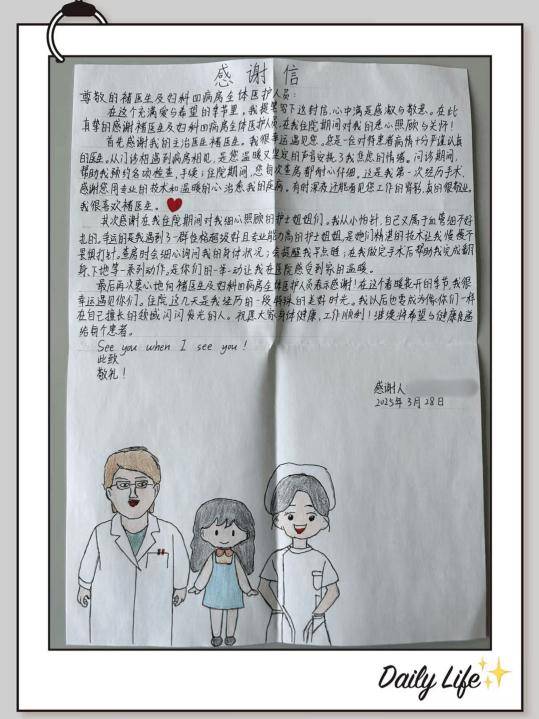 感谢信
尊敬的褚医生及妇科四病房全体医护人员：
在这个充满爱与希望的季节里，我提笔写下这封信，心中满是感激与敬意。在此
真挚的感谢褚医生及妇科四病房全体医护人员，在我住院期间对我的悉心照顾与关怀！
首先感谢我的主治医生褚医生。我很幸运遇见您。您是一位对待患者病情十分严谨认真
的医生。从门诊相遇到病房相见，是您温暖又坚定的声音安抚了我焦虑的情绪。问诊期间，
帮助我预约各项检查、手续；住院期间，您每次查房都耐心仔细。这是我第一次经历手术，
感谢您用专业的技术和温暖的心，治愈我的疾病。有时深夜还能看见您工作的身影，真的很敬业。
我很喜欢褚医生。
其次感谢在我住院期间对我细心照顾的护士姐姐们。我从小怕针，自己又属于血管细不好
走的。幸运的是我遇到了一群性格超级好且专业能力高的护士姐姐，是她们精湛的技术让我慢慢不
畏惧打针。查房时会细心询问我的身体状况；会提醒我早点睡；在我做完手术后帮助我完成翻
身、下地等一系列动作。是你们的一举一动让我在医院感受到家的温暖。
最后再次衷心地向褚医生及妇科四病房全体医护人员表示感谢！在这个春暖花开的季节，我很
幸运遇见你们。住院这几天是我经历的一段特殊的美好时光。我以后也要成为像你们一样
在自己擅长的领域闪闪发光的人。祝愿大家身体健康，工作顺利！继续将希望与健康传递
给每个患者。
See you when I see you！
此致
敬礼！
感谢人
2025年3月28日
Daily Life